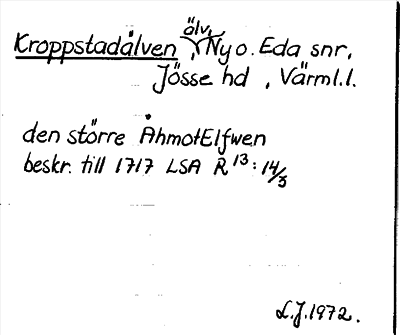 Kroppstadälven, älv, Ny o. Eda snr,
Jösse hd, Värml.l.
den större ÅhmotElfwen
beskr. till 1717 LSA R 13:14/3
L.J.1972.